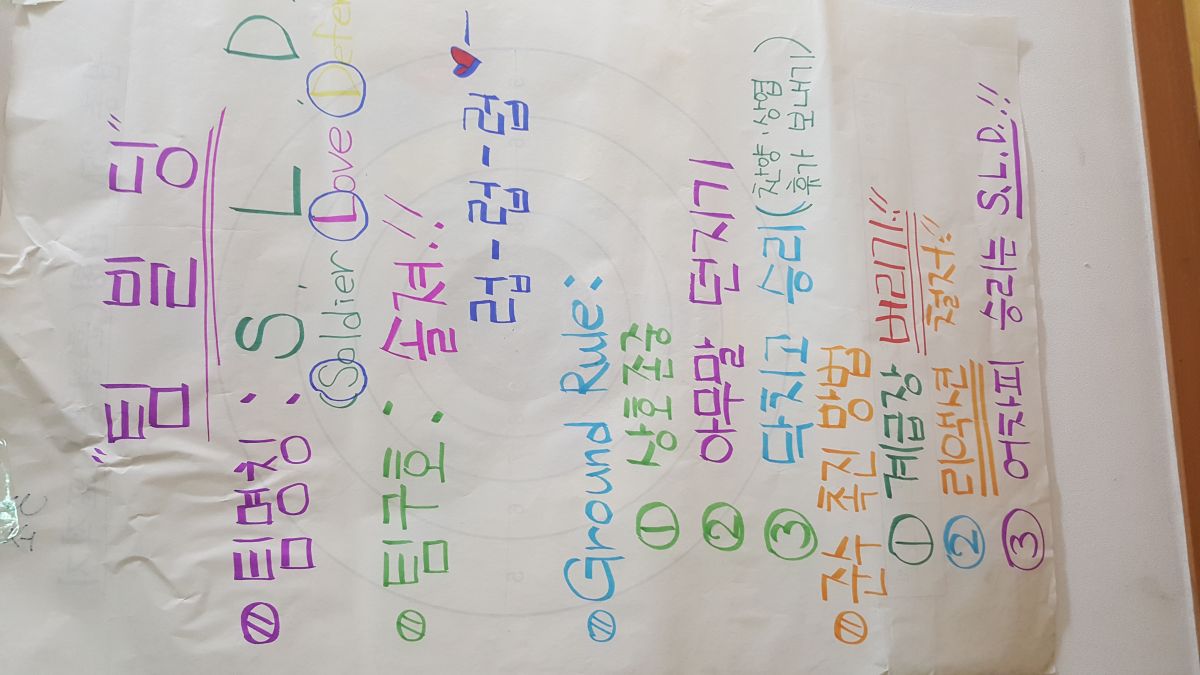 "팀 빌 딩"
팀명칭 : S. L. D.
(Soldier Love Defen
팀구호 : 솔져!!
럽-럽-럽 ♥
Ground Rule :
① 상호존중
② 아무말 던지기
③ 닥치고 승리(찬양·상엽 휴가 보내기)
준수 촉진 방법
① 계급장 버리기!!!
② 리액션 철저!!
③ 어차피 승리는 S.L.D.!!